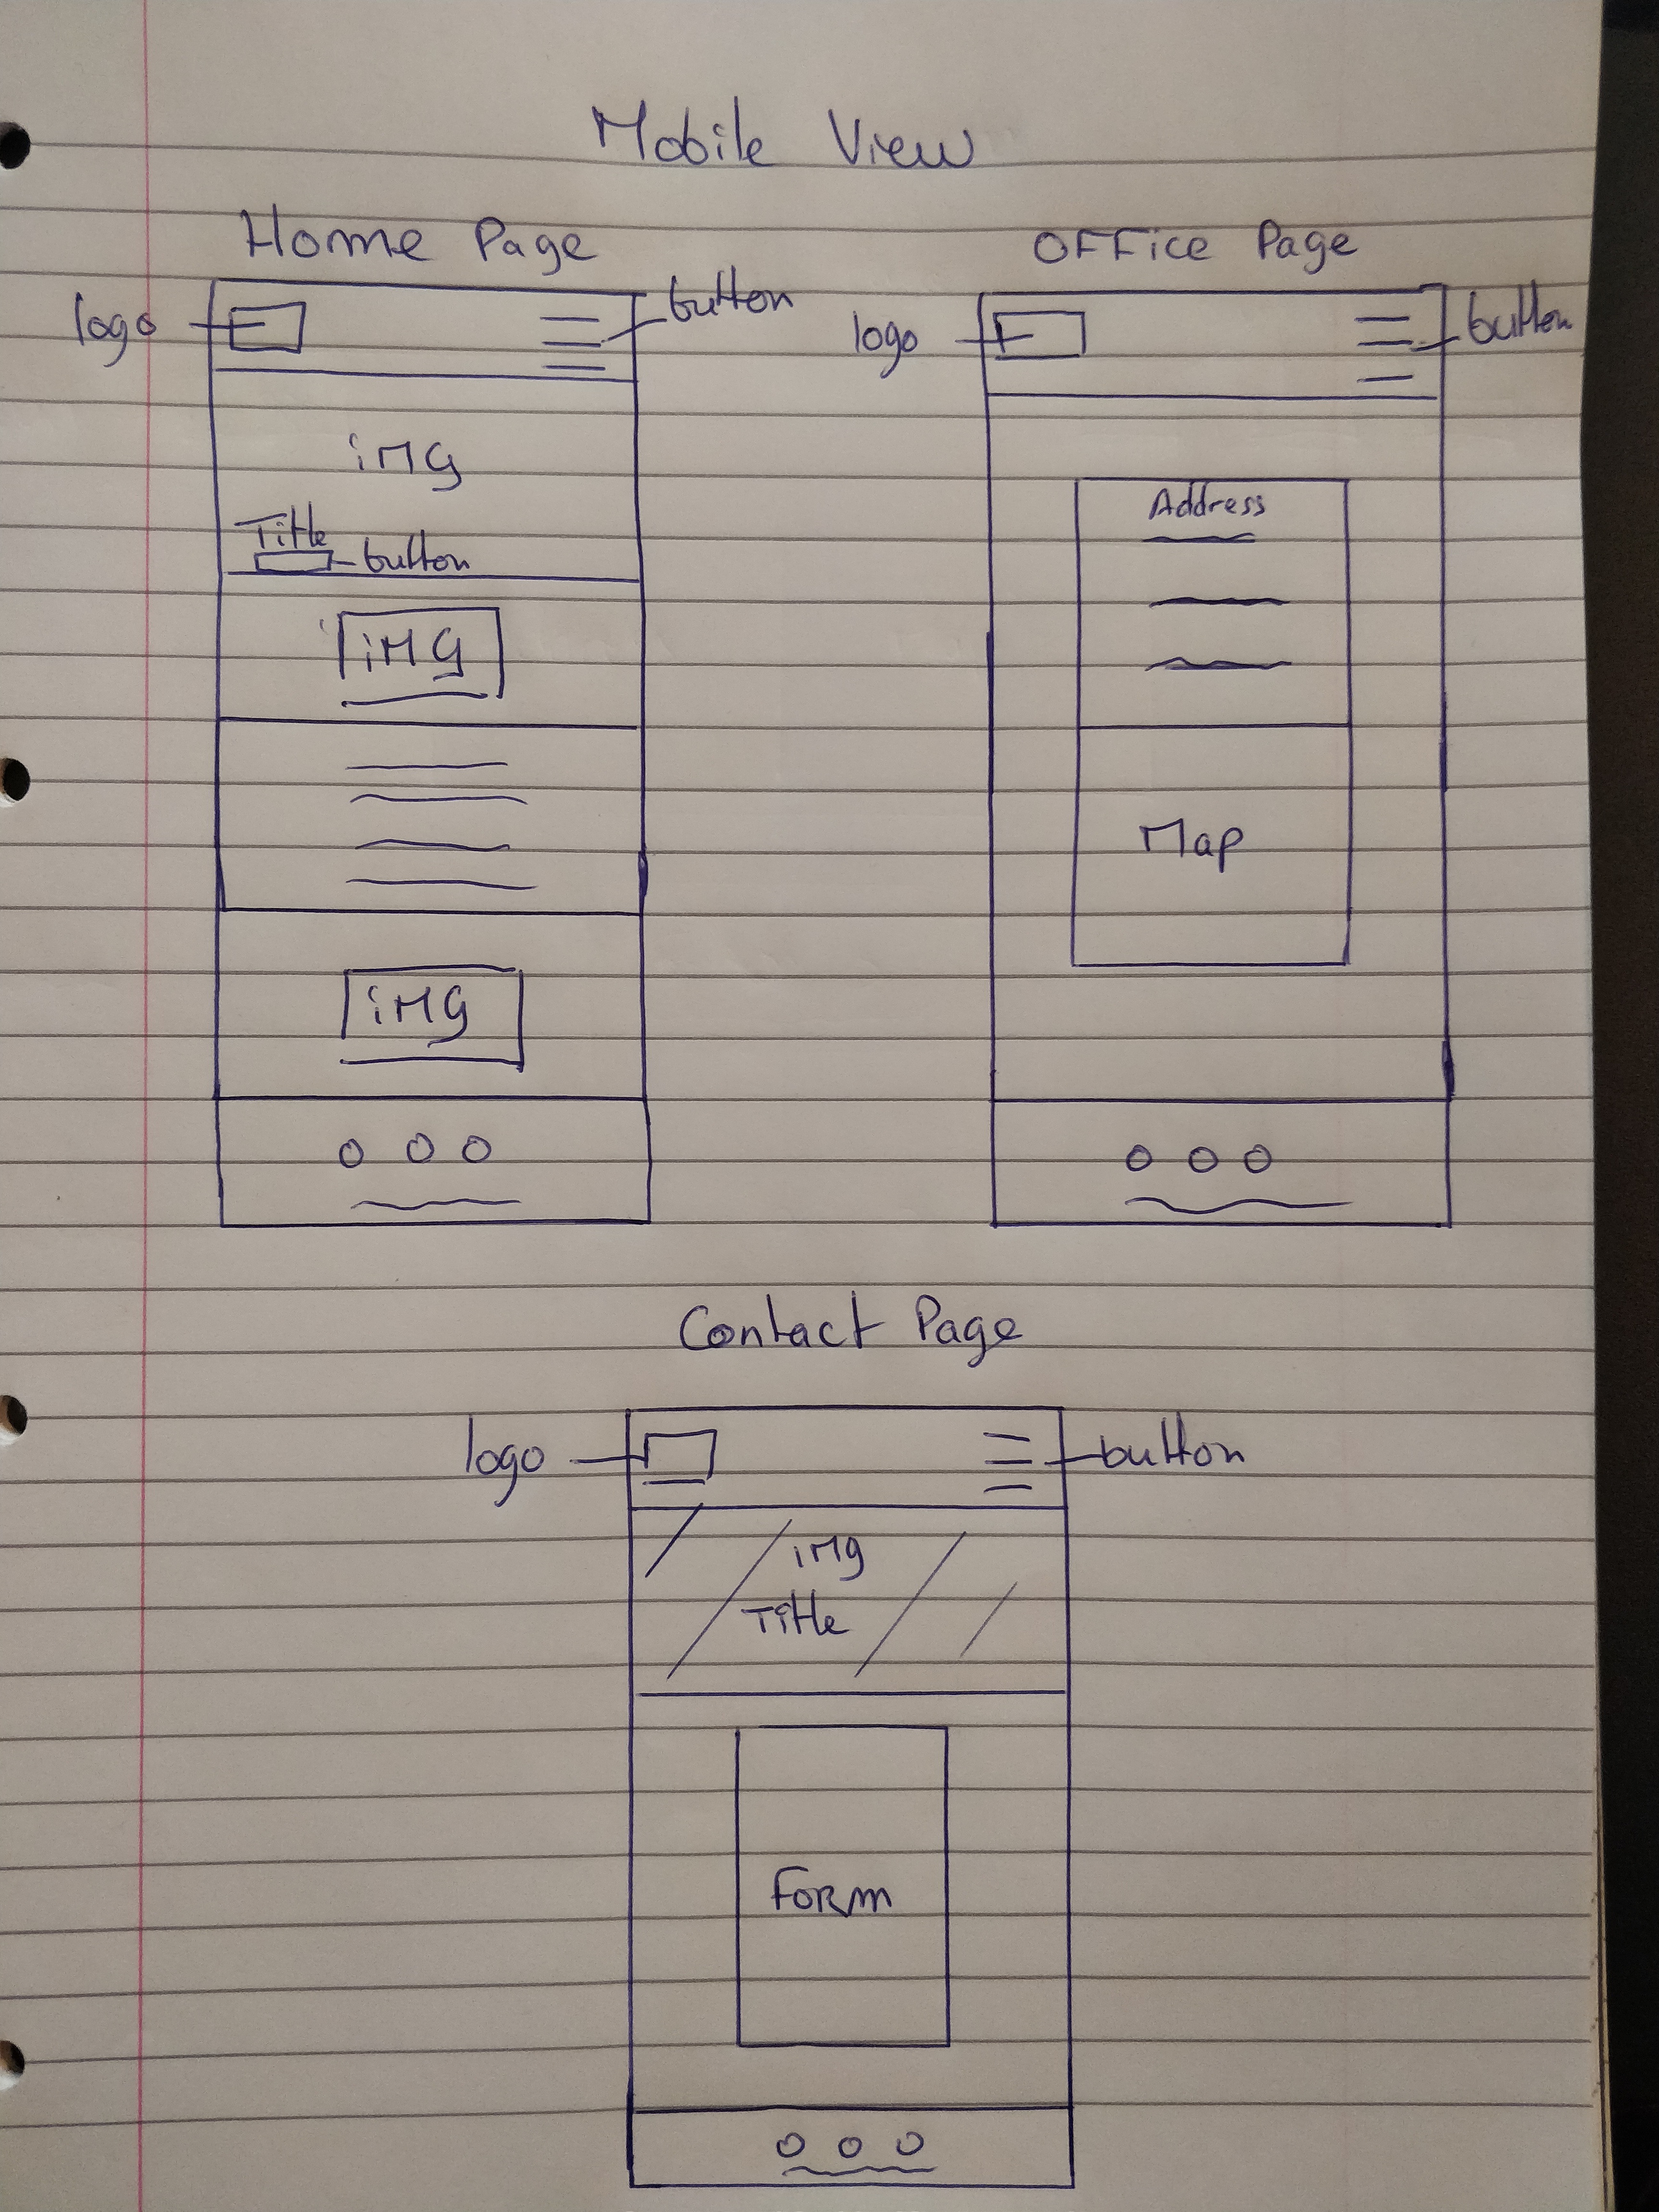 Mobile View
Home Page
logo
button
iMG
Title
button
iMG
iMG
OFFice Page
logo
button
Address
Map
Contact Page
logo
button
iMg
Title
Form